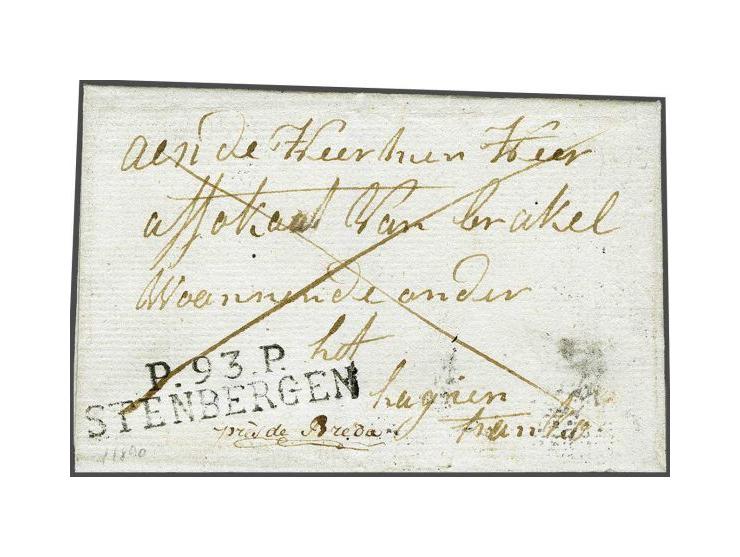 aen de Heer mer Heer
affokaat Van brakel
Woannende onder
het
hagien
franko
P. 93. P.
STENBERGEN
près de Breda